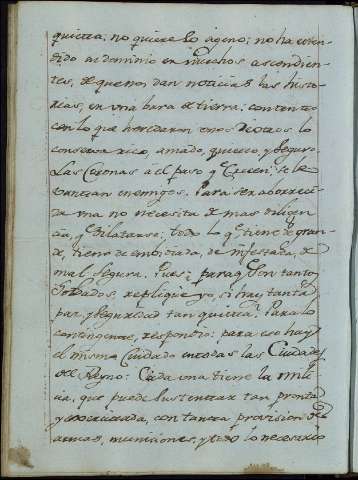 quieta; no quiere lo ageno; no ha esten-
dido su dominio en muchos ascendien-
tes, de que nos dan noticias las histo-
rias, en una bara de tierra: contento
con lo que heredaron unos de otros lo
conserva rico, amado, quieto, y seguro.
Las Coronas a el paso q crecen se le-
vantan enemigos. Para ser aborreci-
da una no necesita de mas diligen-
cia, q dilatarse; todo lo q tiene de gran-
de, tiene de embidiada, de infestada, de
mal segura. Pues para q son tantos
Soldados, repliqué yo, si hay tanta
paz, y seguridad tan quieta? Para lo
contingente, respondio: para eso hay
el mismo cuidado en todas las Ciudades
del Reyno: Cada una tiene la mili-
cia, que puede sustentar tan pronta
y exercitada, con tanta provision de
armas, municiones, y todo lo necesario